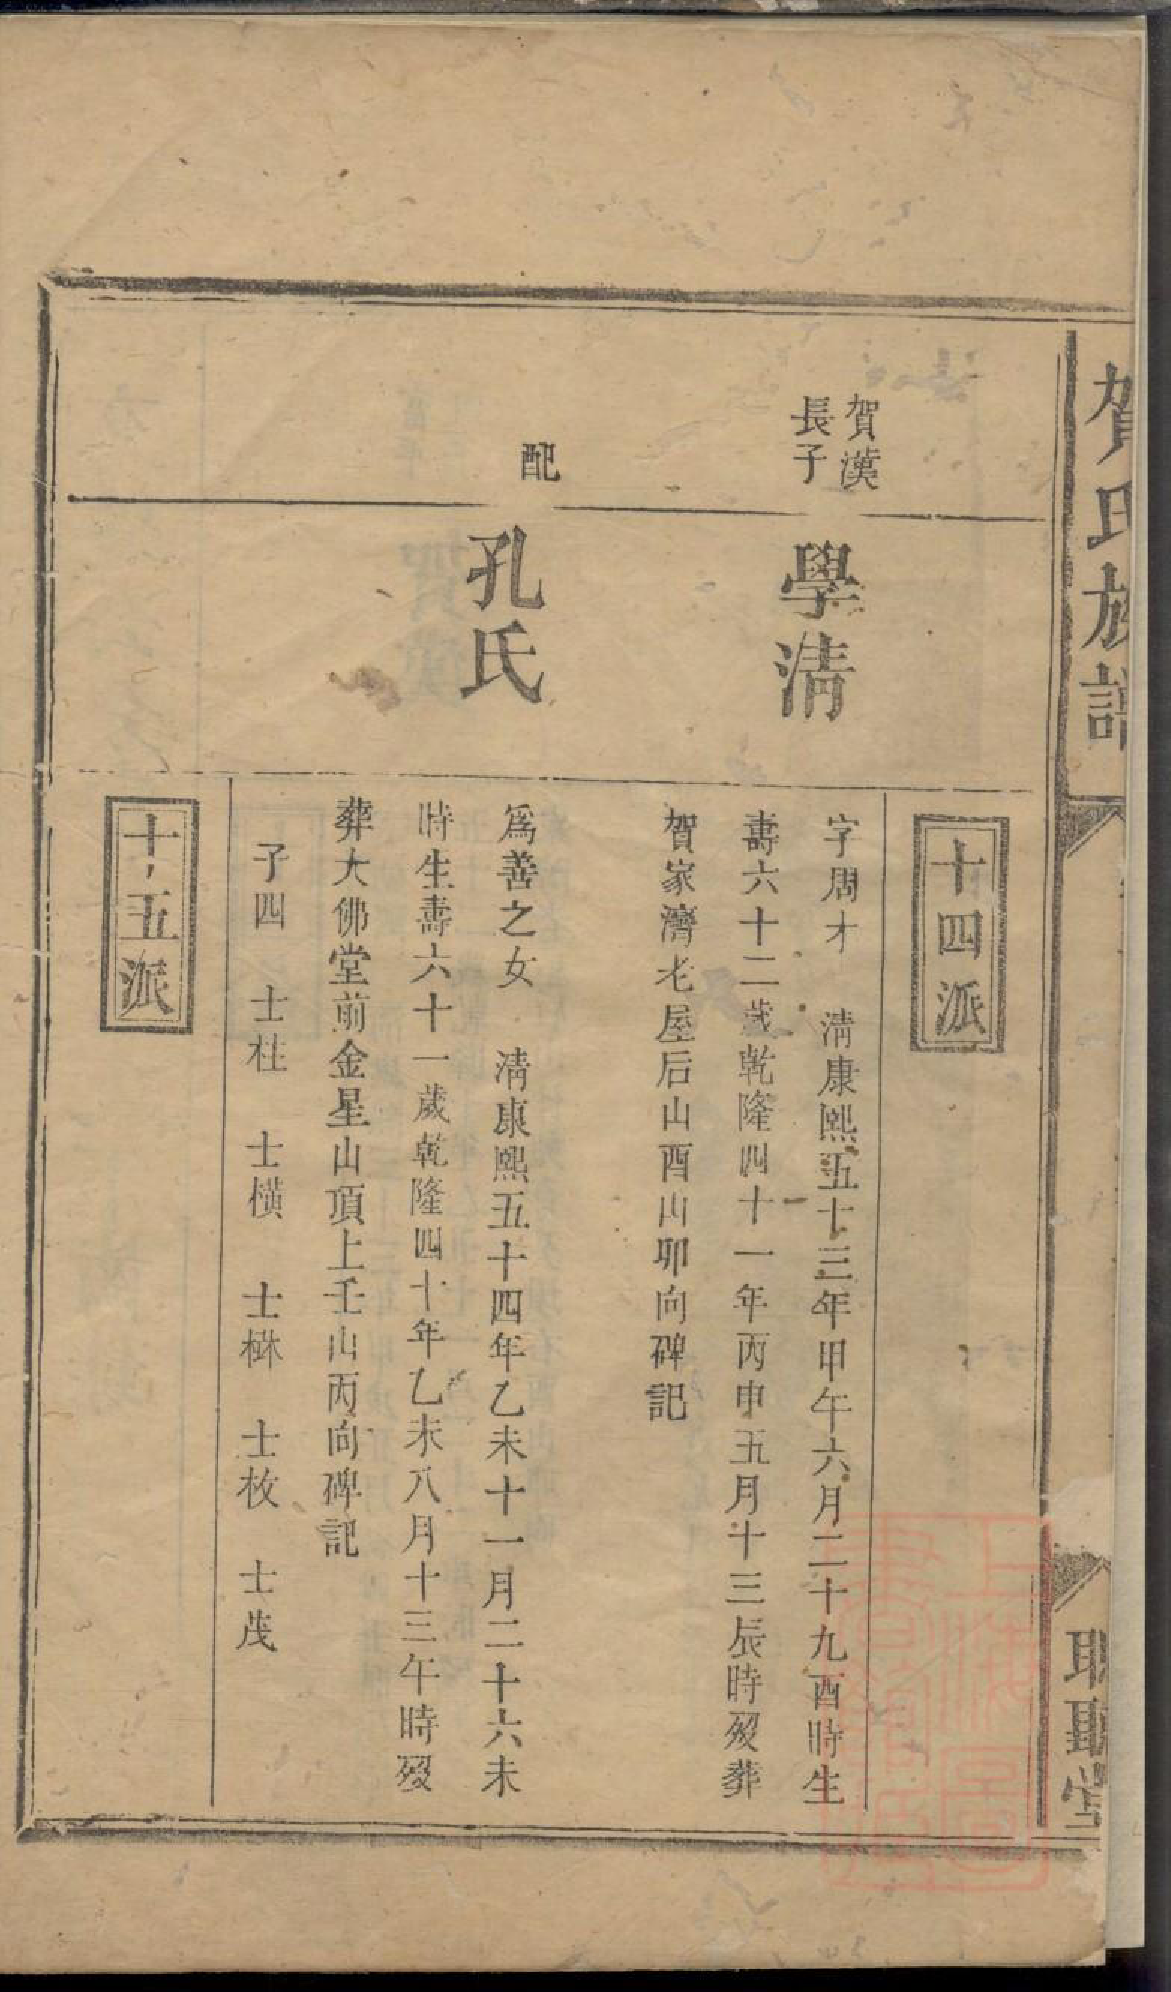 賀氏族譜
聪聽堂
十四派
賀漢
長子
學淸
字周才 淸康熙五十三年甲午六月二十九酉時生
壽六十二歲乾隆四十一年丙申五月十三辰時歿葬
賀家濟老屋后山酉山卯向碑記
配
孔氏
爲善之女 淸康熙五十四年乙未十一月二十六未
時生壽六十一歲乾隆四十年乙未八月十三午時歿
葬大佛堂前金星山頂上壬山丙向碑記
子四 士桂 士橫 士楙 士枚 士茂
十五派